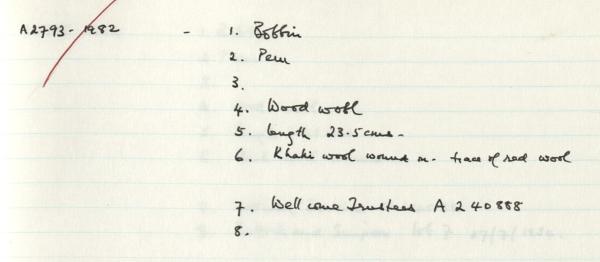 A2793-1982 - 1. Bobbin
2. Peru
3.
4. Wood wool
5. length 23.5cms-
6. Khaki wool wound on. trace of red wool
7. Wellcome Trustees A 240888
8.